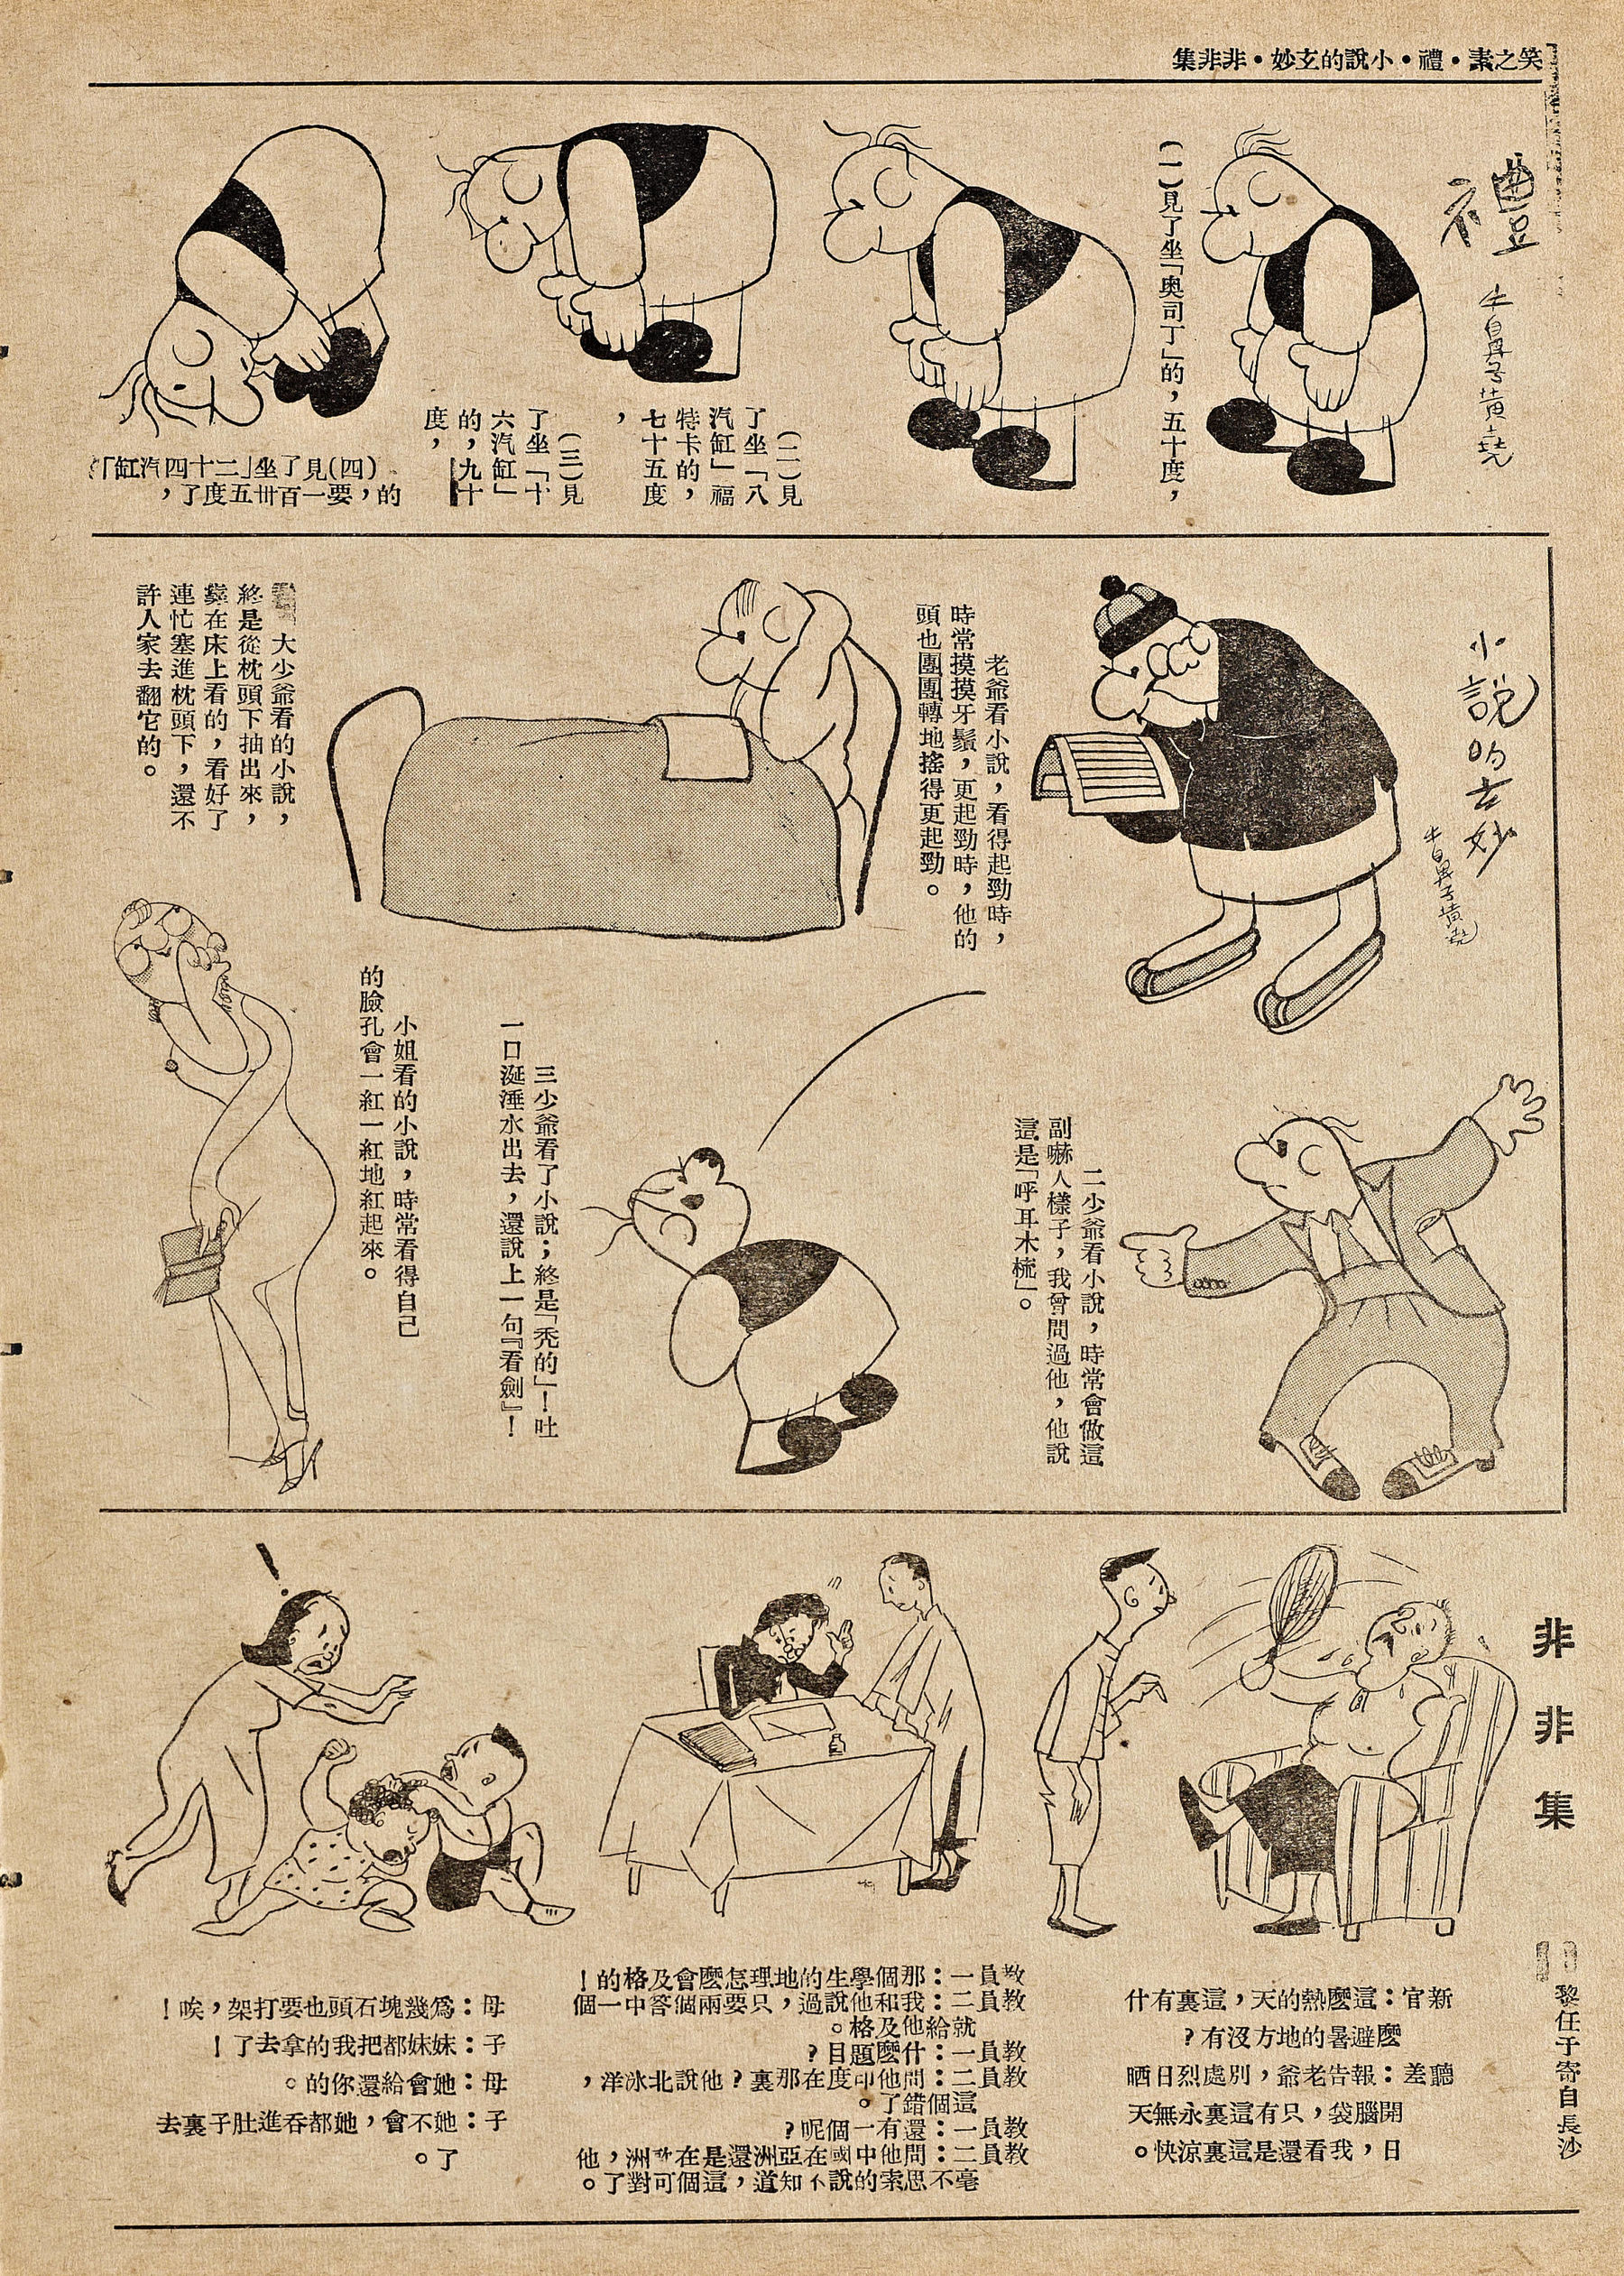 笑之素•禮•小說的玄妙•非非集
禮
牛鼻子黃堯
(一)見了坐「奥司丁」的，五十度，
(二)見
了坐「八
汽缸」福
特卡的，
七十五度
，
(三)見
了坐「十
六汽缸」
的，九十
度，
(四)見了坐「二十四汽缸「
的，要一百卅五度了，
小說的玄妙
牛鼻子黃堯
老爺看小說，看得起勁時，
時常摸摸牙鬚，更起勁時，他的
頭也團團轉地搖得更起勁。
大少爺看的小說，
終是從枕頭下抽出來，
在床上看的，看好了
連忙塞進枕頭下，還不
許人家去翻它的。
二少爺看小說，時常會做這
副嚇人樣子，我曾問過他，他說
這是「呼耳木梳」。
三少爺看了小說；終是「禿的」！吐
一口涎淫水出去，還說上一句『看劍』！
小姐看的小說，時常看得自己
的臉孔會一紅一紅地紅起來。
非非集
黎任于寄自長沙
新官：這麼熱的天，這裏有什
麼避暑的地方沒有？
聽差：報告老爺，別處烈日晒
開腦袋，只有這裏永無天
日，我看還是這裏涼快。
教員一：那個學生的地理怎麼會及格的！
教員二：我和他說過，只要兩個答中一個
就給他及格。
教員一：什麼題目？
教員二：問他印度在那裏？他說北冰洋，
這個錯了。
教員一：還有一個呢？
教員二：問他中國在亞洲還是在歐洲，他
毫不思索的說不知道，這個可對了。
母：爲幾塊石頭也要打架，唉！
子：妹妹都把我的拿去了！
母：她會給還你的。
子：她不會，她都吞進肚子裏去
了。